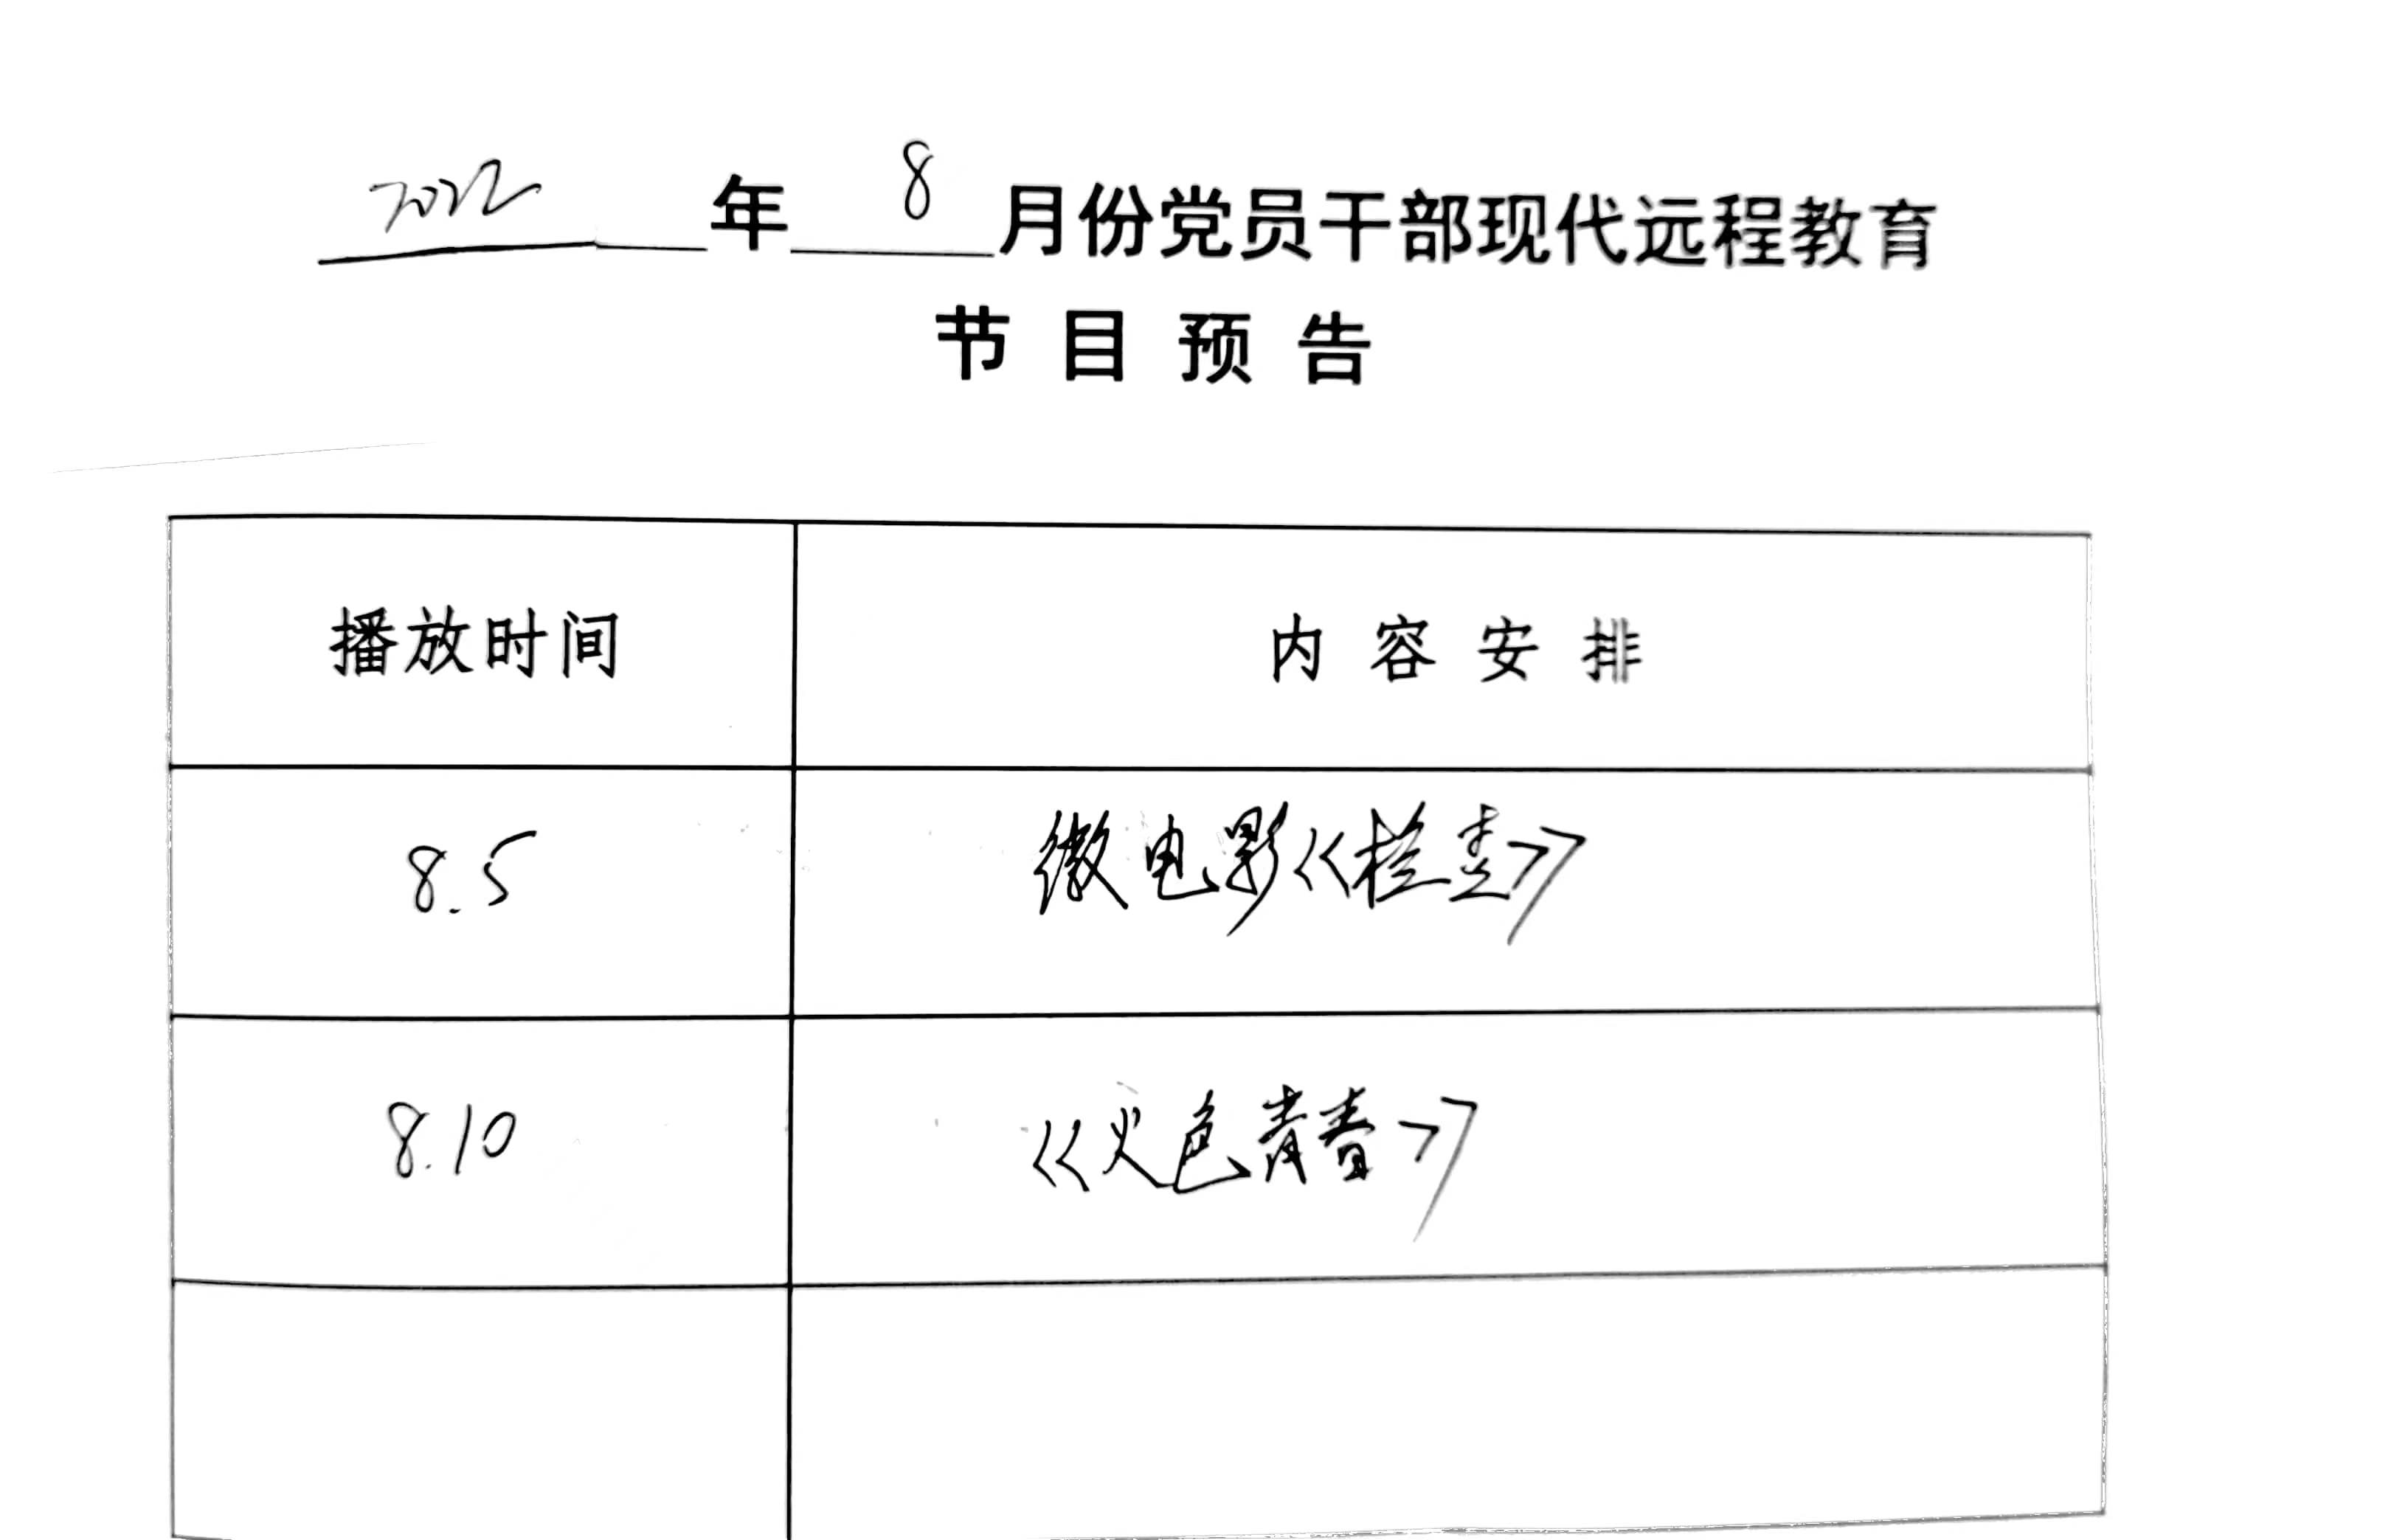 2022年8月份党员干部现代远程教育
节目预告
播放时间 内容安排
8.5 微电影《检查》
8.10 《火色青春》